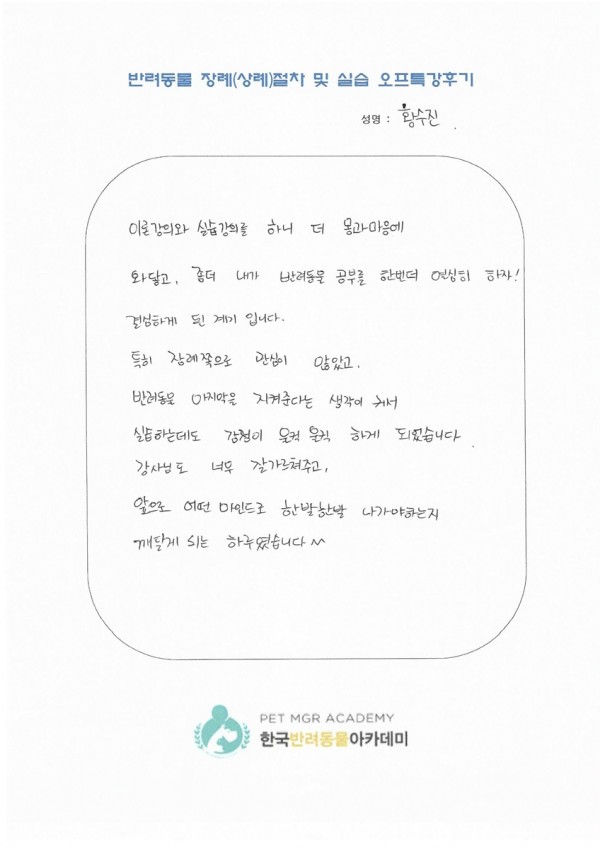 반려동물 장례(상례)절차 및 실습 오프특강후기
성명 : 황수진
이론강의와 실습강의를 하니 더 몸과마음에
와달고, 좀더 내가 반려동물 공부를 한번더 열심히 하자!
결심하게 된 계기 입니다.
특히 장례쪽으로 관심이 많았고,
반려동물 마지막을 지켜준다는 생각이 커서
실습하는데도 감정이 울컥 울컥 하게 되었습니다
강사님도 너무 잘가르쳐주고,
앞으로 어떤 마인드로 한발한발 나가야하는지
깨닫게 되는 하루였습니다 ^^
PET MGR ACADEMY
한국반려동물아카데미